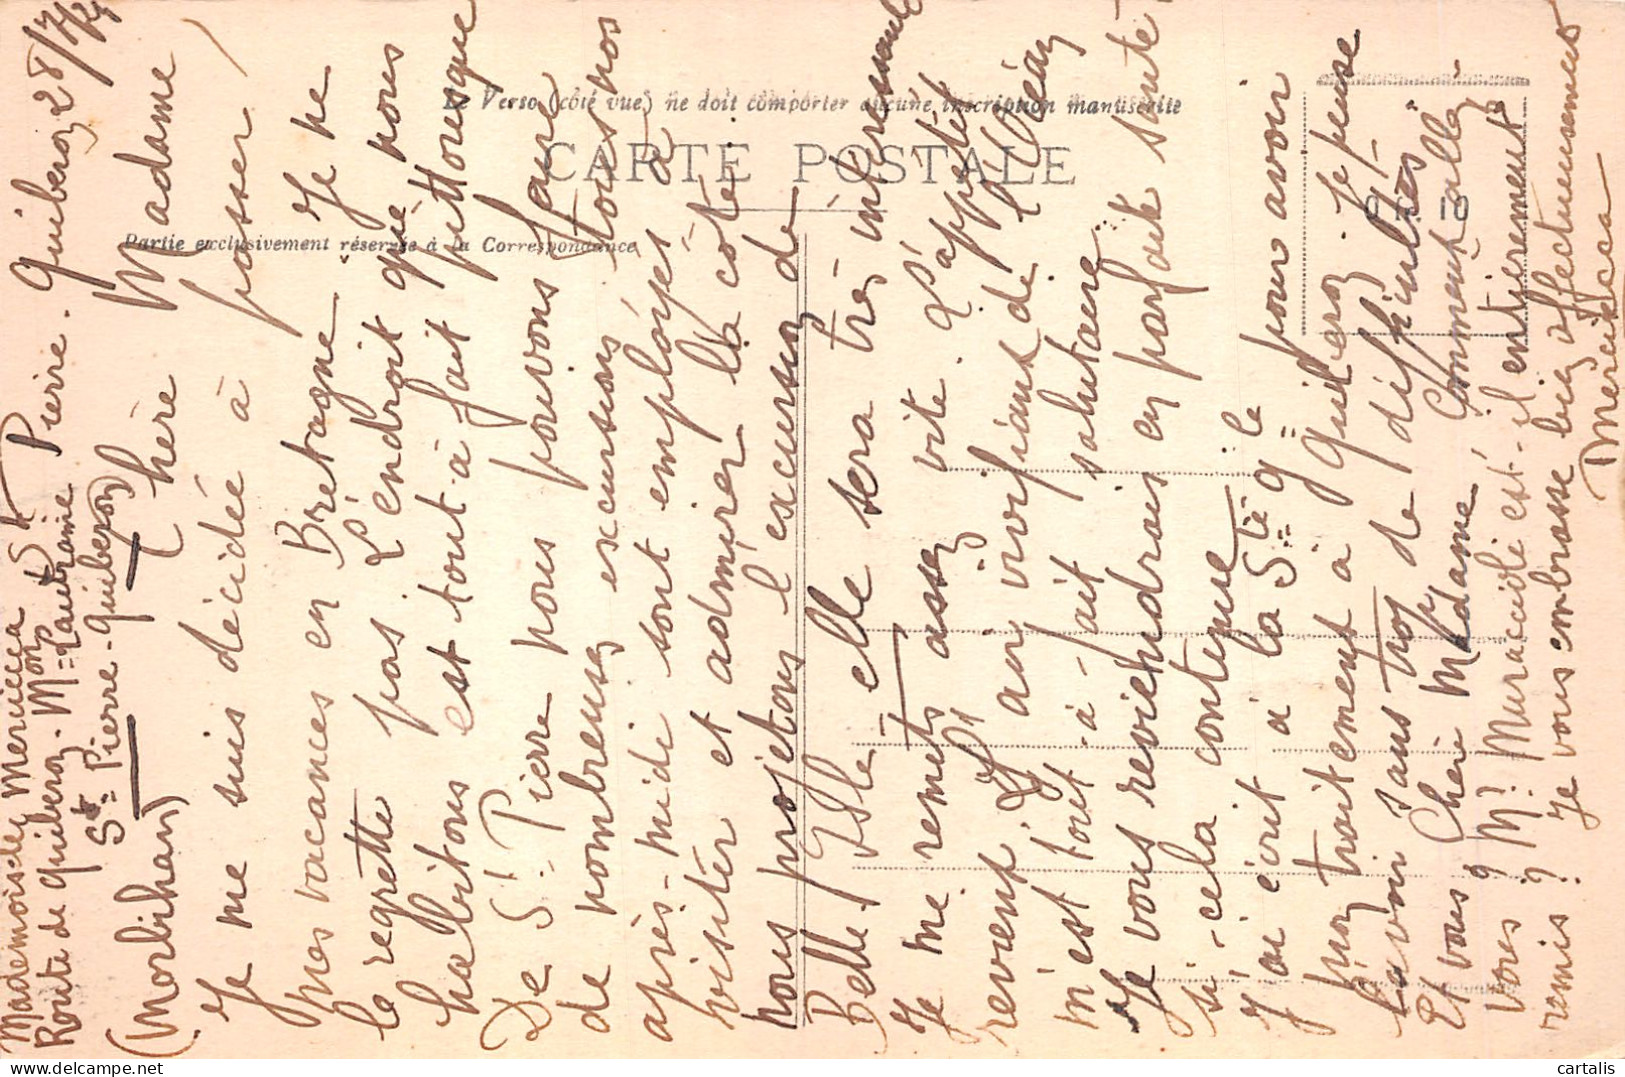 Le Verso (côté vue) ne doit comporter aucune inscription manuscrite
CARTE POSTALE
Partie exclusivement réservée à la Correspondance
Mademoiselle Mericca St Pierre. Quiberon 28/7/
Route de Quiberon. Mon
St Pierre-Quiberon
(Morbihan) Chère Madame,
Je me suis décidée à passer
mes vacances en Bretagne. Je ne
le regrette pas. L'endroit que nous
habitons est tout à fait pittoresque
De St Pierre nous pouvons faire
de nombreuses excursions. Toutes nos
après-midi sont employés à
visiter et admirer la côte.
nous projetons l'excursion de
Belle Isle elle sera très intéressante
Je me remets assez vite. L'appétit
revient. L'air vivifiant de l'Océan
m'est tout-à-fait salutaire.
Je vous reviendrais en parfaite santé
si cela continue.
J'ai écrit à la Sté Gle pour avoir
mon traitement à Quiberon. Je pense
l'avoir sans trop de difficultés.
Et vous Chère Madame Comment allez-
vous? Mr Muraccioli est-il entièrement
remis? Je vous embrasse bien affectueusement
Mericca
CARTALIS
cartalis.com